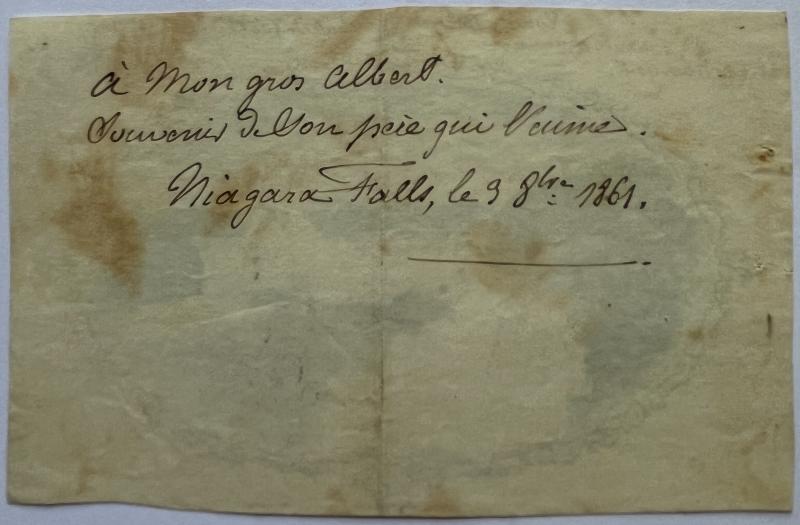 à Mon gros Albert.
Souvenir de Son père qui l'aime.
Niagara Falls, le 9 8bre 1861.